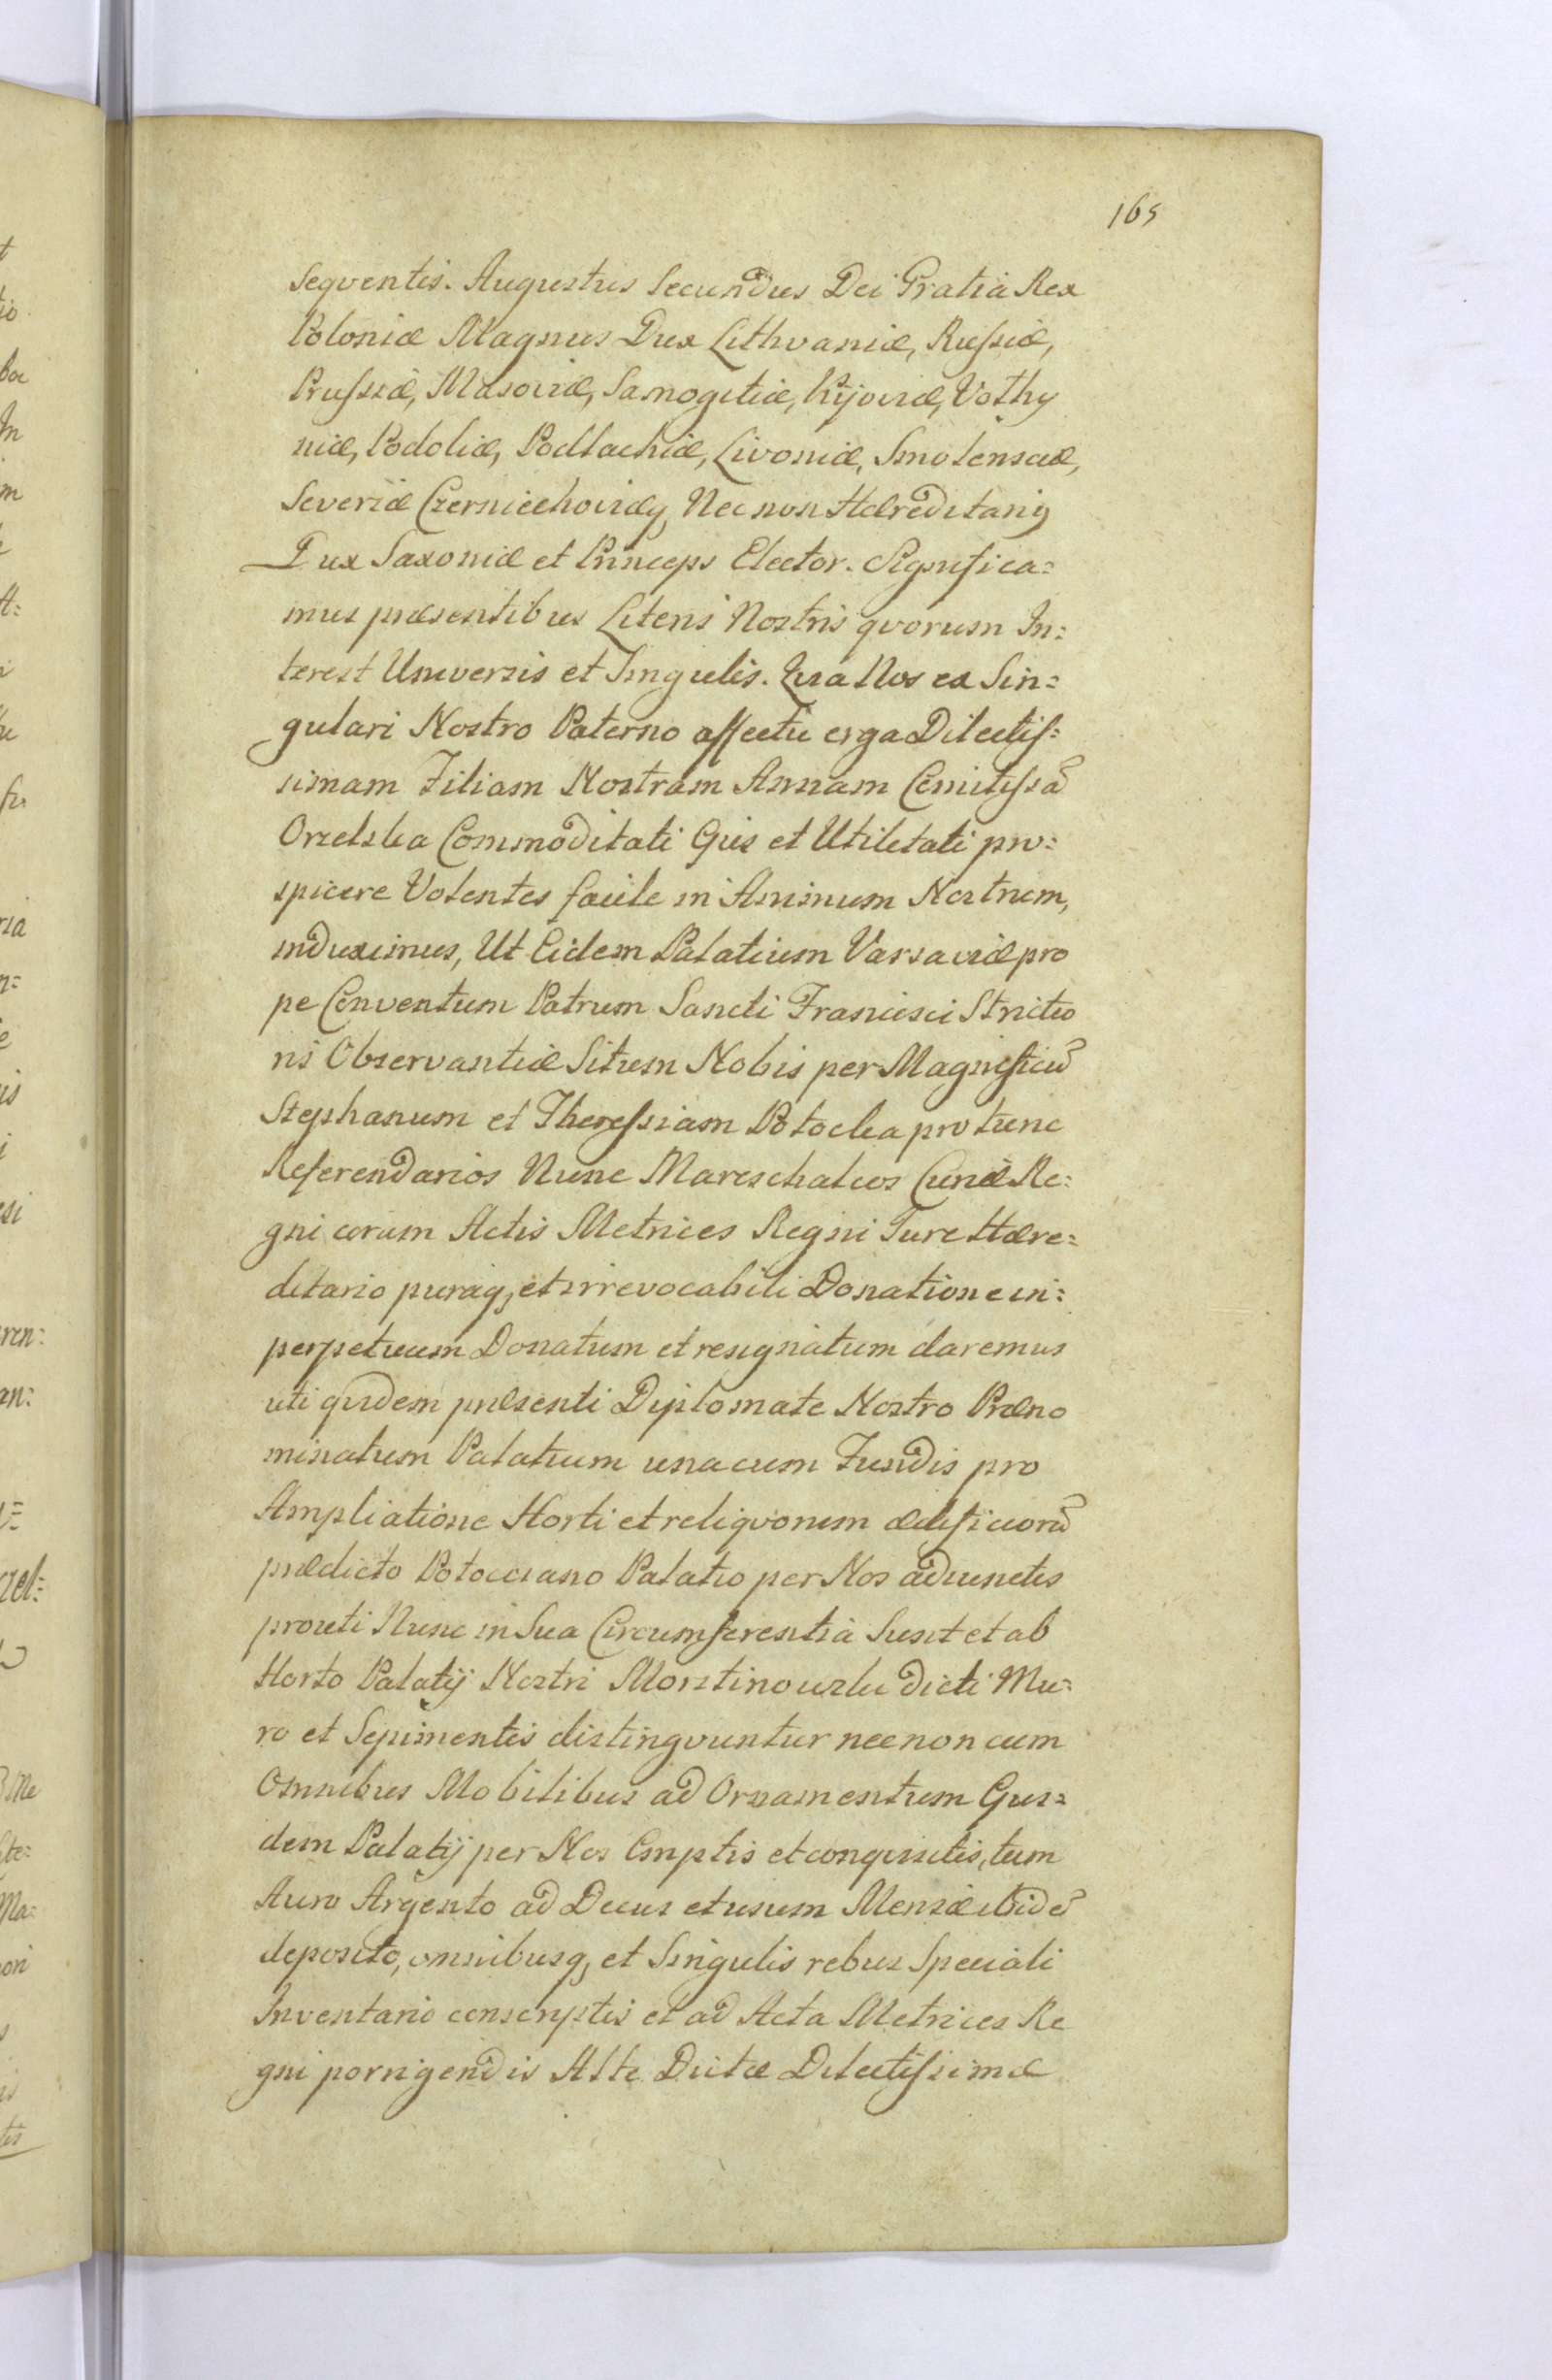 165
Seqventis. Augustus Secundus Dei Gratia Rex
Poloniæ Magnus Dux Lithvaniæ, Rußiæ,
Prußiæ, Masoviæ, Samogitiæ, Kijoviæ, Volhy
niæ, Podoliæ, Podlachiæ, Livoniæ, Smolensciæ,
Severiæ Czerniechoviæq, Nec non Hæreditariq
Dux Saxoniæ et Princeps Elector. Significa=
mus præsentibus Literis Nostris qvorum In=
terest Universis et Singulis. Quia Nos ex Sin=
gulari Nostro Paterno affectu erga Dilectiß=
simam Filiam Nostram Annam Comitißsã
Orzelska Commoditati Ejus et Utilitati pro=
spicere Volentes facile in Animum Nostrum,
induximus, Ut Eidem Palatium Varsaviæ pro
pe Conventum Patrum Sancti Francisci Strictio
ris Observantiæ Situm Nobis per Magnificũ
Stephanum et Thereßiam Potockia pro tunc
Referendarios Nunc Mareschalcos Curiæ Re=
gni coram Actis Metrices Regni Jure Hære=
ditario puraq, et irrevocabili Donatione in=
perpetuum Donatum et resignatum daremus
uti qvidem præsenti Diplomate Nostro Præno
minatum Palatium unacum Fundis pro
Ampliatione Horti et reliqvorum ædificiorũ
prædicto Potocciano Palatio per Nos adiunctis
prouti Nunc in Sua Circumferentia Sunt et ab
Horto Palatij Nostri Morstinowski dicti Mu=
ro et Sepimentis distingvuntur necnon cum
Omnibus Mobilibus ad Ornamentum Ejus=
dem Palatij per Nos Emptis et conqvisitis, tum
Auro Argento ad Decus et usum Mensæ ibidẽ
deposito, omnibusq, et Singulis rebus Speciali
Inventario conscriptis et ad Acta Metrices Re
gni porrigendis Alte Dictæ Dilectißimæ